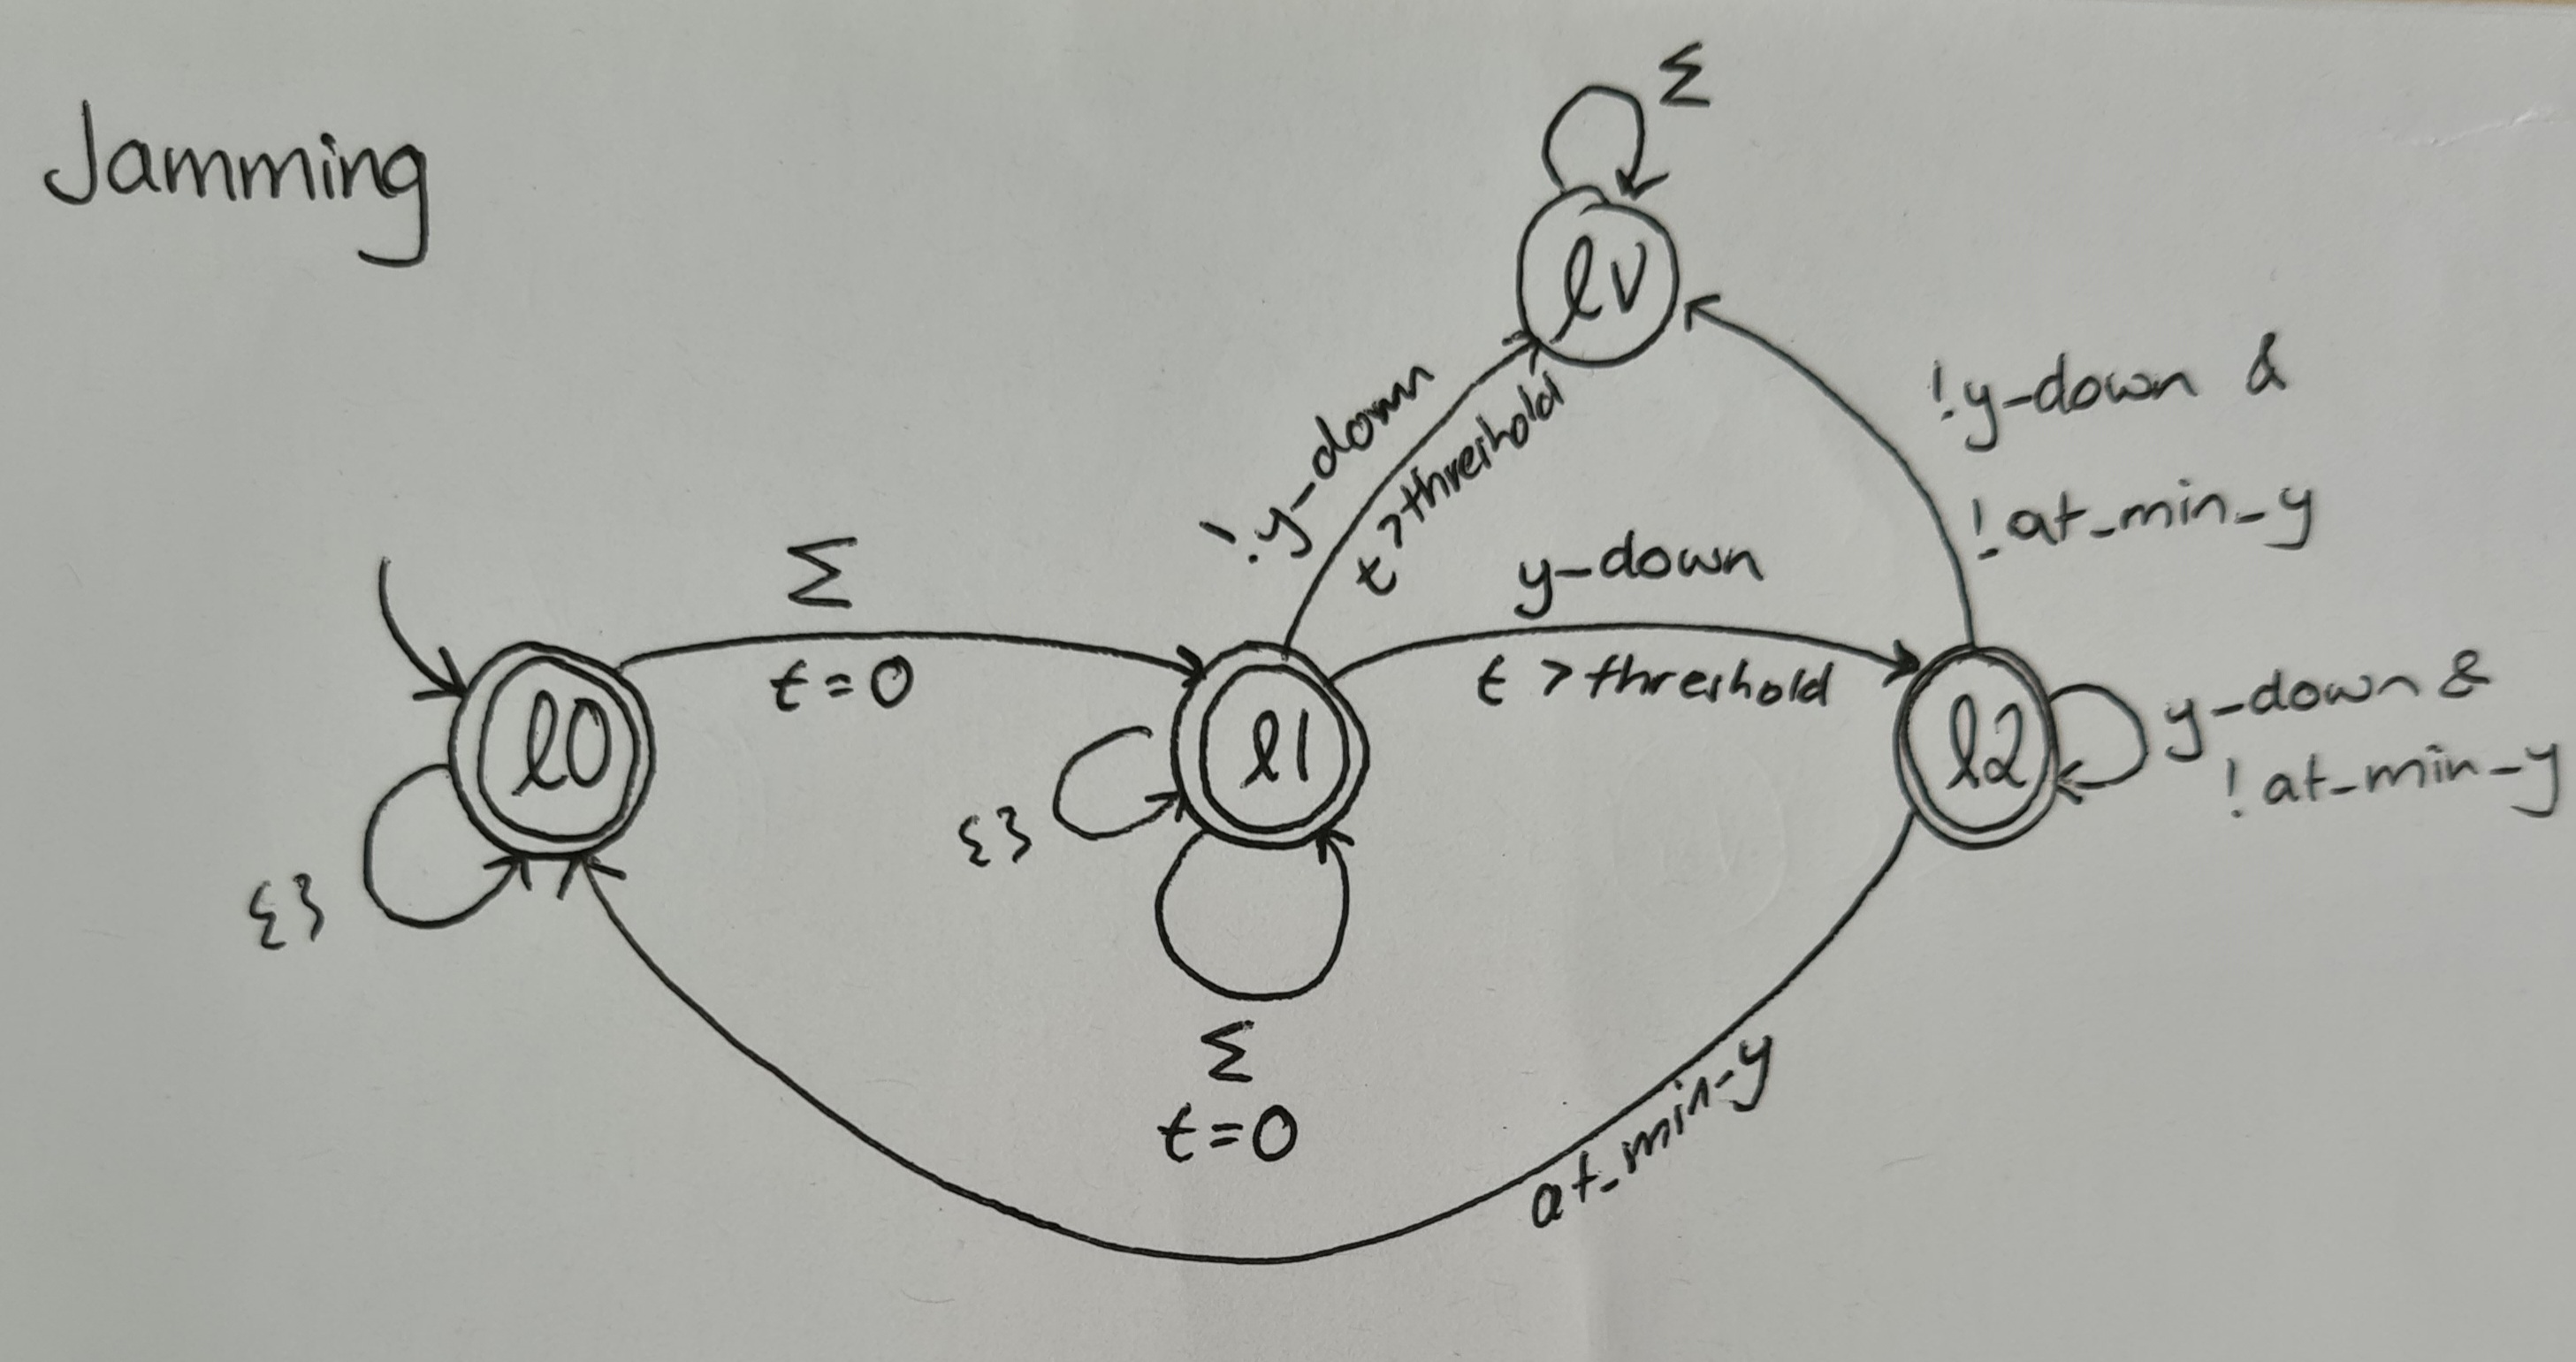 Jamming
Σ
lv
!y-down
t>threshold
!y-down &
!at_min-y
Σ
t=0
y-down
t>threshold
l0
l1
l2
y-down &
!at_min-y
{}
{}
Σ
t=0
at_min-y